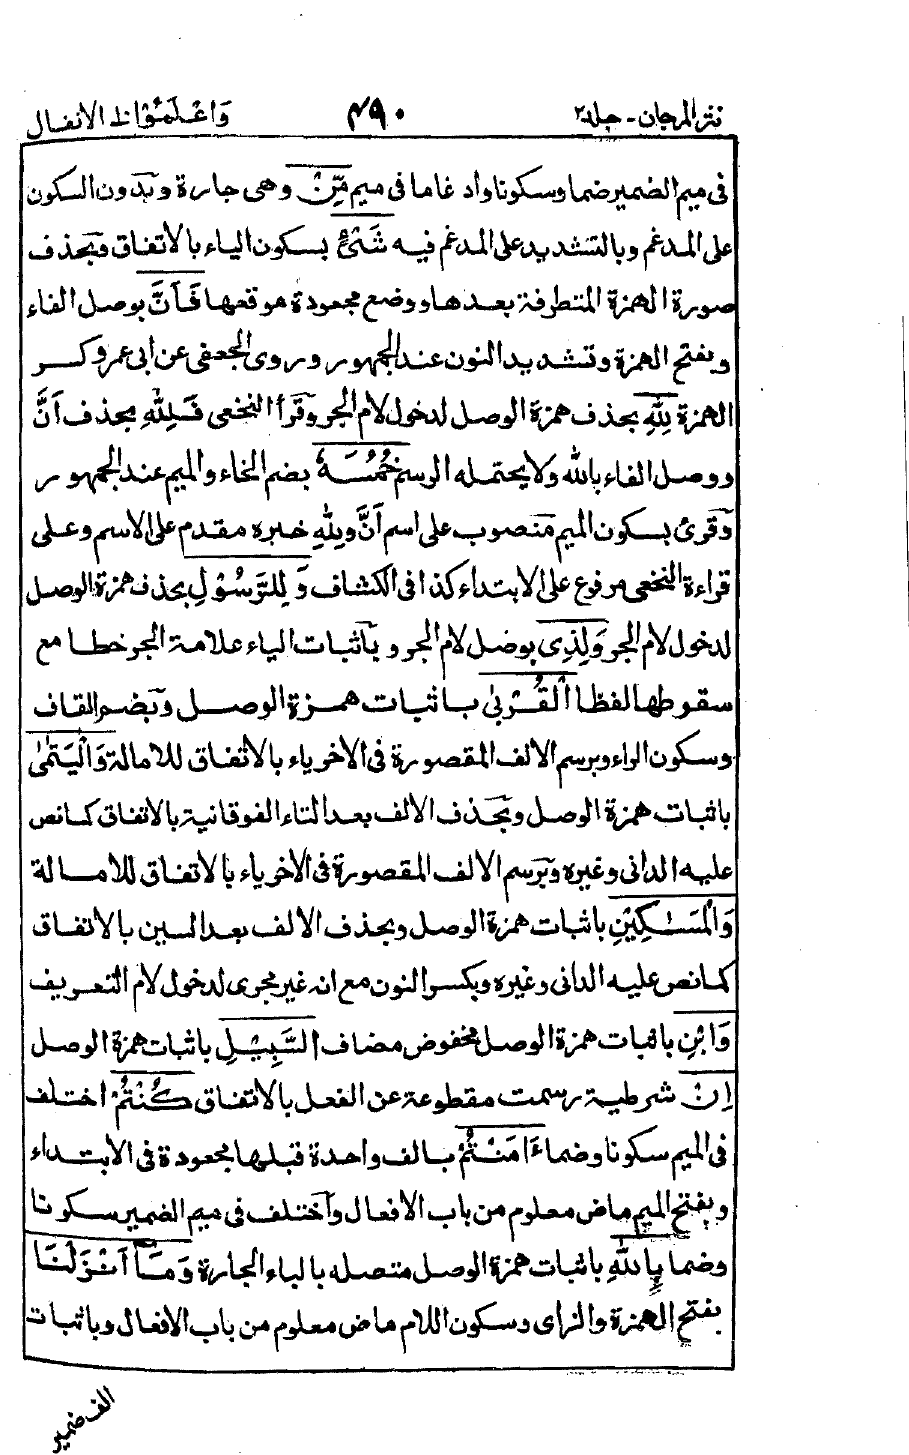 نثر المرجان - جلد ٢ ٤٩٠ وَاعْلَمُوْا ط الانفال
فى ميم الضمير ضما وسكونا وادغاما فى ميم مِّنْ وهى جارة وبدون السكون
على المدغم وبالتشديد على المدغم فيه شَىْءٍ بسكون الياء بالاتفاق وبحذف
صورة الهمزة المتطرفة بعدها ووضع مجعودة موقعها فَاَنَّ بوصل الفاء
وبفتح الهمزة وتشديد النون عند الجمهور وروى الجعفى عن ابى عمرو كسر
الهمزة لِلّٰهِ بحذف همزة الوصل لدخول لام الجر وقرأ النخعى فَلِلّٰهِ بحذف اَنَّ
ووصل الفاء بالله ولا يحتمله الرسم خُمُسَهٗ بضم الخاء والميم عند الجمهور
وقرئ بسكون الميم منصوب على اسم اَنَّ ولِلّٰهِ خبره مقدم على الاسم وعلى
قراءة النخعى مرفوع على الابتداء كذا فى الكشاف وَلِلرَّسُوْلِ بحذف همزة الوصل
لدخول لام الجر وَلِذِى بوصل لام الجر وباثبات الياء علامة الجر خطا مع
سقوطها لفظا الْقُرْبٰى باثبات همزة الوصل وبضم القاف
وسكون الراء وبرسم الالف المقصورة فى الاخر ياء بالاتفاق للامالة وَالْيَتٰمٰى
باثبات همزة الوصل وبحذف الالف بعد التاء الفوقانية بالاتفاق كما نص
عليه الدانى وغيره وبرسم الالف المقصورة فى الاخر ياء بالاتفاق للامالة
وَالْمَسٰكِيْنِ باثبات همزة الوصل وبحذف الالف بعد السين بالاتفاق
كما نص عليه الدانى وغيره وبكسر النون مع انه غير مجرى لدخول لام التعريف
وَابْنِ باثبات همزة الوصل مخفوض مضاف السَّبِيْلِ باثبات همزة الوصل
اِنْ شرطية رسمت مقطوعة عن الفعل بالاتفاق كُنْتُمْ اختلف
فى الميم سكونا وضما ءَامَنْتُمْ بالف واحدة قبلها مجعودة فى الابتداء
وبفتح الميم ماض معلوم من باب الافعال واختلف فى ميم الضمير سكونا
وضما بِاللّٰهِ باثبات همزة الوصل متصله بالباء الجارة وَمَآ اَنْزَلْنَا
بفتح الهمزة والزاى وسكون اللام ماض معلوم من باب الافعال وباثبات
الف ضمير